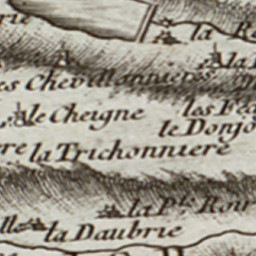 rie
la Re
A la
es Chevillonnieres
le Cheigne
les Fe
le Donjo
re la Trichonniere
la P.te Rou
lle la Daubrie